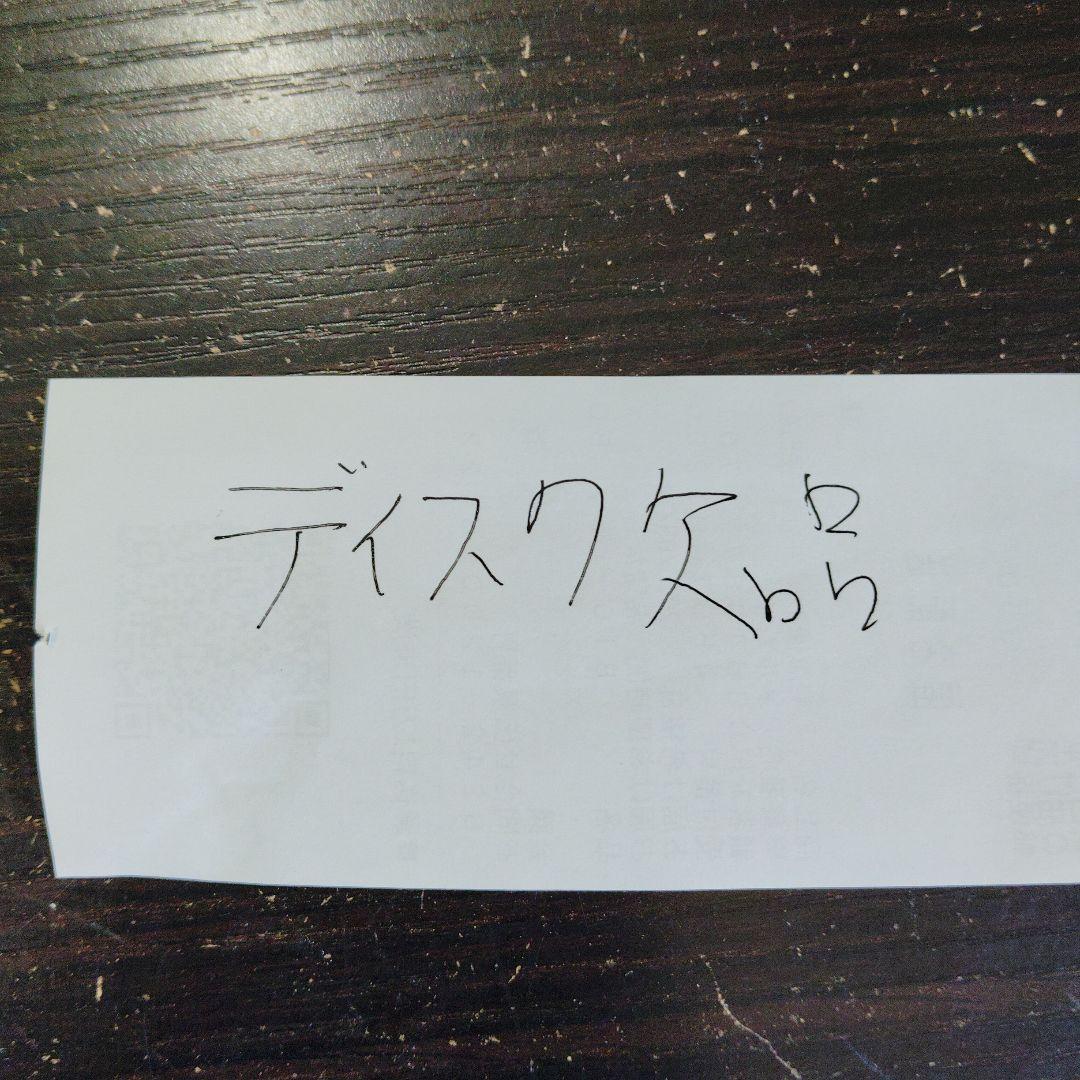 ディスク欠品